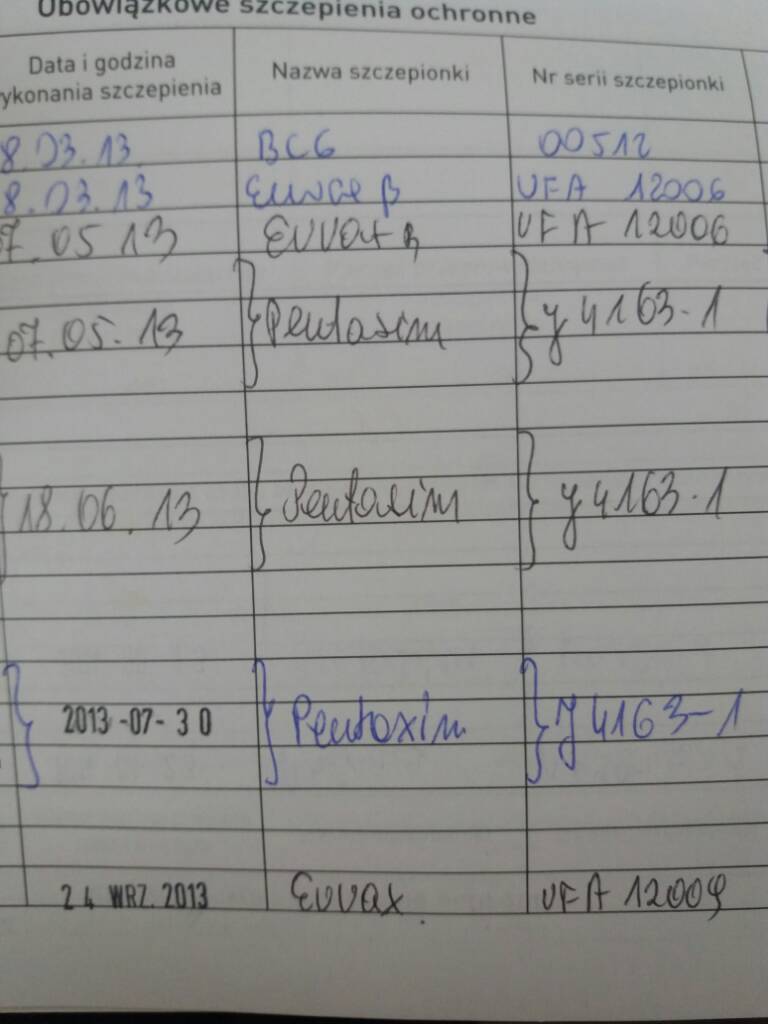 Obowiązkowe szczepienia ochronne
Data i godzina
ykonania szczepienia
Nazwa szczepionki
Nr serii szczepionki
8.03.13 BCG 00512
8.03.13 Euvax β UFA 12006
7.05 13 Euvax B UFA 12006
07.05.13 Pentaxim y4163-1
18.06.13 Pentaxim y4163-1
2013-07-30 Pentaxim y4163-1
24 WRZ. 2013 Euvax UFA 12009